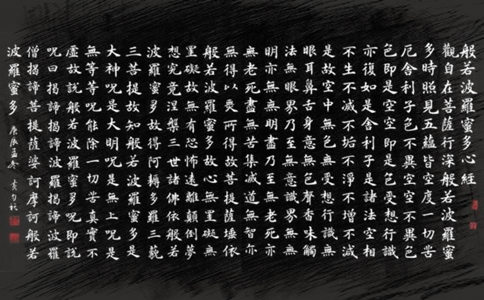 般若波羅蜜多心經
觀自在菩薩行深般若波羅蜜
多時照見五蘊皆空度一切苦
厄舍利子色不異空空不異色
色即是空空即是色受想行識
亦復如是舍利子是諸法空相
不生不滅不垢不淨不增不減
是故空中無色無受想行識無
眼耳鼻舌身意無色聲香味觸
法無眼界乃至無意識界無無
明亦無無明盡乃至無老死亦
無老死盡無苦集滅道無智亦
無得以无所得故菩提薩埵依
般若波羅蜜多故心無罣礙無
罣礙故無有恐怖遠離顛倒夢
想究竟涅槃三世諸佛依般若
波羅蜜多故得阿耨多羅三藐
三菩提故知般若波羅蜜多是
大神呪是大明呪是無上呪是
無等等呪能除一切苦真實不
虛故說般若波羅蜜多呪即說
呪曰揭諦揭諦波羅揭諦波羅
僧揭諦菩提薩婆訶摩訶般若
波羅蜜多